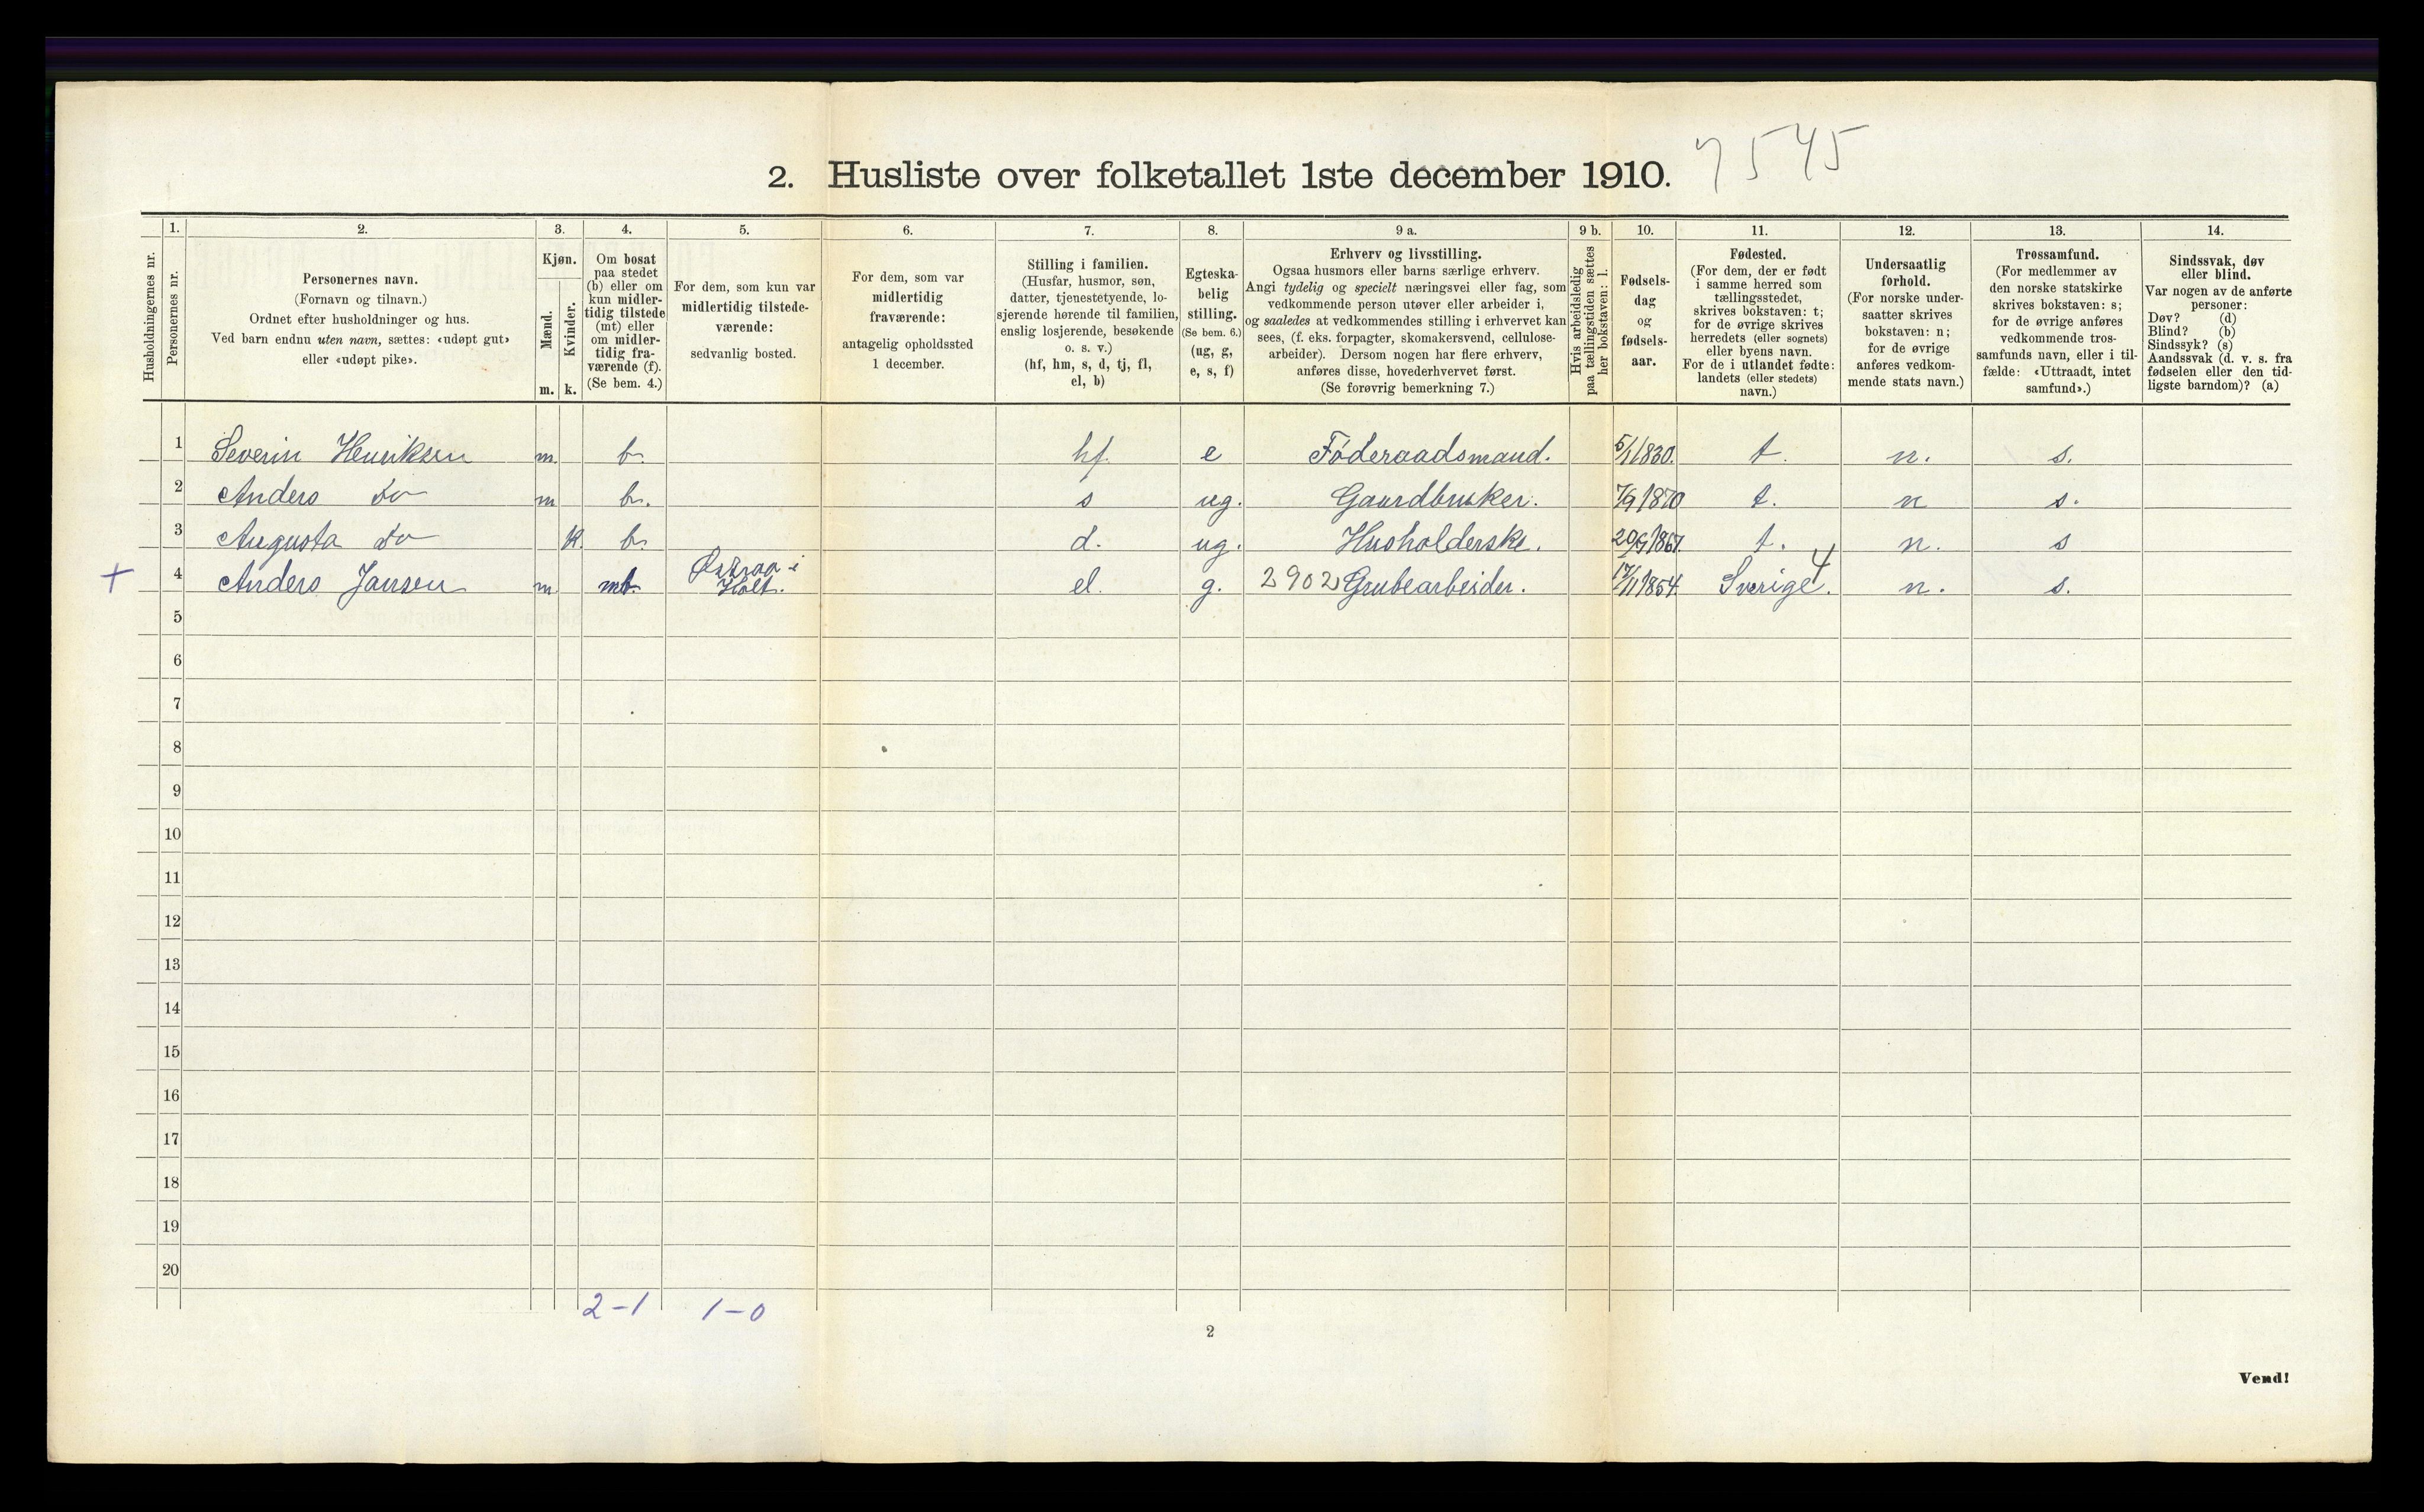 2. Husliste over folketallet 1ste december 1910. 7545
Husholdningernes nr.
1. Personernes nr.
2. Personernes navn.
(Fornavn og tilnavn.)
Ordnet efter husholdninger og hus.
Ved barn endnu uten navn, sættes: «udøpt gut»
eller «udøpt pike».
3. Kjøn.
Mænd. m.
Kvinder. k.
4. Om bosat
paa stedet
(b) eller om
kun midler-
tidig tilstede
(mt) eller
om midler-
tidig fra-
værende (f).
(Se bem. 4.)
5. For dem, som kun var
midlertidig tilstede-
værende:
sedvanlig bosted.
6. For dem, som var
midlertidig
fraværende:
antagelig opholdssted
1 december.
7. Stilling i familien.
(Husfar, husmor, søn,
datter, tjenestetyende, lo-
sjerende hørende til familien,
enslig losjerende, besøkende
o. s. v.)
(hf, hm, s, d, tj, fl,
el, b)
8. Egteska-
belig
stilling.
(Se bem. 6.)
(ug, g,
e, s, f)
9 a. Erhverv og livsstilling.
Ogsaa husmors eller barns særlige erhverv.
Angi tydelig og specielt næringsvei eller fag, som
vedkommende person utøver eller arbeider i,
og saaledes at vedkommendes stilling i erhvervet kan
sees, (f. eks. forpagter, skomakersvend, cellulose-
arbeider). Dersom nogen har flere erhverv,
anføres disse, hovederhvervet først.
(Se forøvrig bemerkning 7.)
9 b. Hvis arbeidsledig
paa tællingstiden sættes
her bokstaven: l.
10. Fødsels-
dag
og
fødsels-
aar.
11. Fødested.
(For dem, der er født
i samme herred som
tællingsstedet,
skrives bokstaven: t;
for de øvrige skrives
herredets (eller sognets)
eller byens navn.
For de i utlandet fødte:
landets (eller stedets)
navn.)
12. Undersaatlig
forhold.
(For norske under-
saatter skrives
bokstaven: n;
for de øvrige
anføres vedkom-
mende stats navn.)
13. Trossamfund.
(For medlemmer av
den norske statskirke
skrives bokstaven: s;
for de øvrige anføres
vedkommende tros-
samfunds navn, eller i til-
fælde: «Uttraadt, intet
samfund».)
14. Sindssvak, døv
eller blind.
Var nogen av de anførte
personer:
Døv? (d)
Blind? (b)
Sindssyk? (s)
Aandssvak (d. v. s. fra
fødselen eller den tid-
ligste barndom)? (a)
1 Severin Henriksen m. b. hf. e Föderaadsmand. 5/1 1830. t. n. s.
2 Anders do m b. s ug. Gaardbruker. 7/9 1870 t. n s.
3 Augusta do k. b. d. ug. Husholderske. 1867. t. n. s
+ 4 Anders Jansen m mt. i Holt. el. g. 2902 Grubearbeider. 17/11 1854. Sverige. 4 n. s.
5
6
7
8
9
10
11
12
13
14
15
16
17
18
19
20
2-1 1-0
2
Vend!